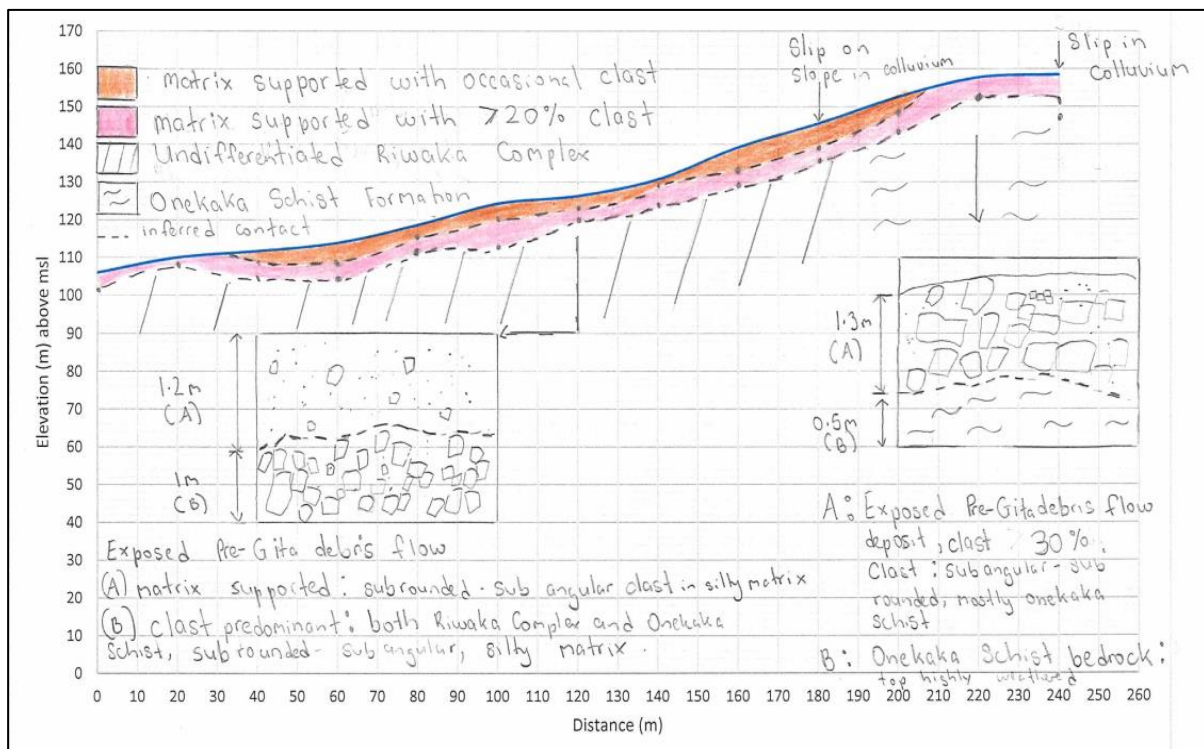 Slip on
slope in colluvium
Slip in
colluvium
matrix supported with occasional clast
matrix supported with >20% clast
Undifferentiated Riwaka Complex
Onekaka Schist Formation
inferred contact
Elevation (m) above msl
170
160
150
140
130
120
110
100
90
80
70
60
50
40
30
20
10
0
1.2m
(A)
1m
(B)
1.3m
(A)
0.5m
(B)
Exposed Pre-Gita debris flow
(A) matrix supported: subrounded - sub angular clast in silty matrix
(B) clast predominant: both Riwaka Complex and Onekaka
schist, subrounded - subangular, silty matrix.
A: Exposed Pre-Gita debris flow
deposit, clast 30%.
Clast: subangular - sub
rounded, mostly onekaka
schist
B: Onekaka Schist bedrock:
top highly weathered
0 10 20 30 40 50 60 70 80 90 100 110 120 130 140 150 160 170 180 190 200 210 220 230 240 250 260
Distance (m)